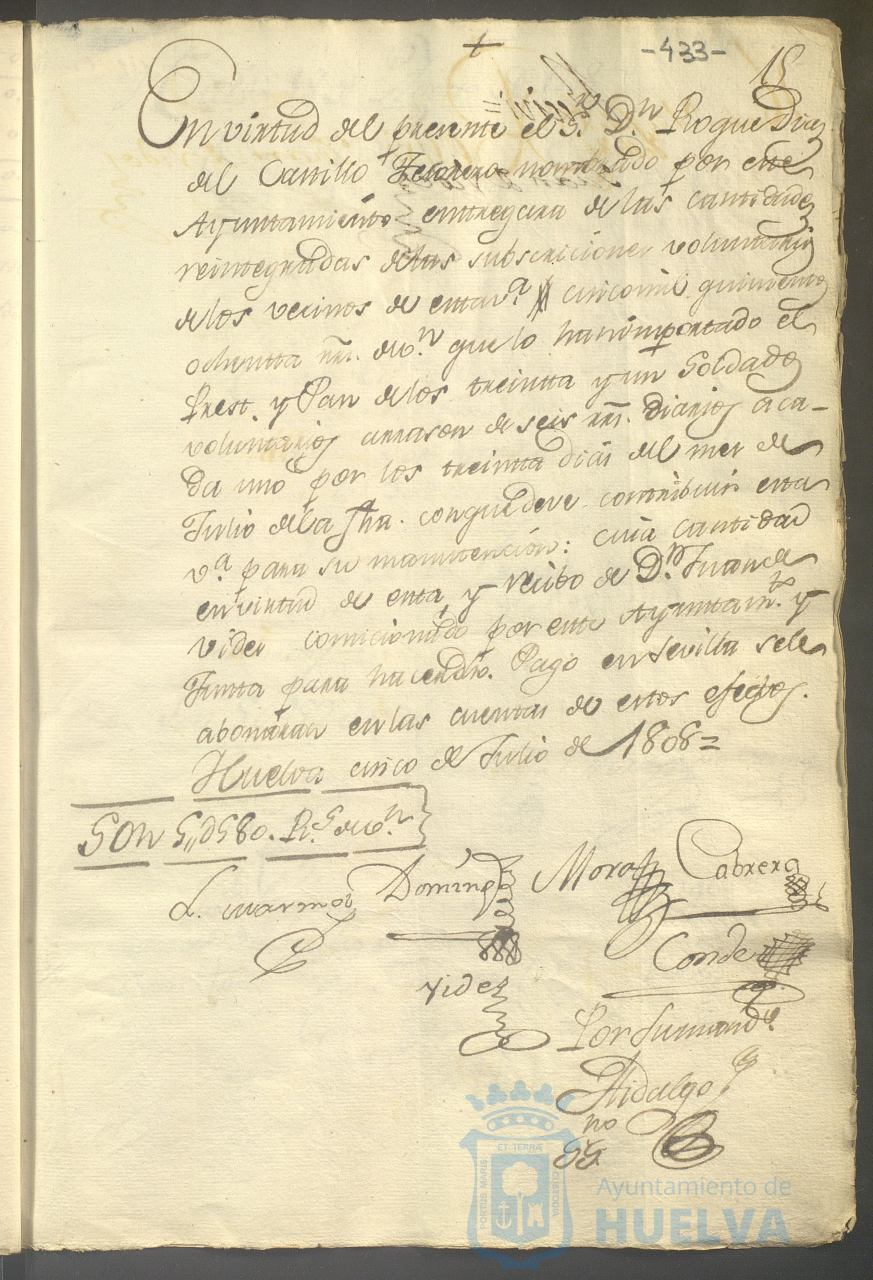 -433-
15
En virtud del presente el S.r D.n Roque Diaz
del Castillo Tesorero nombrado por este
Ayuntamiento entregara de las cantidades
reintegradas de las subscriciones voluntarias
de los vecinos de esta v.a cinco mil quinientos
ochentta rrs. de v.n que lo han importado el
Prest. y Pan de los treintta y un Soldados
voluntarios arrason de seis rrs. diarios a ca-
da uno por los treintta dias del mes de
Julio de la fha. con que deve contribuir esta
v.a para su manutencion: cuia cantidad
en virtud de esta, y recibo de D.n Juan de
Vides comicionado por este Ayuntam.to y
Junta para hacer dho. Pago en Sevilla se le
abonaran en las cuentas de estos efectos.
Huelva cinco de Julio de 1808=
Son 5,,d580. R.s de v.n
Domingz
Mora
Cabrera
Conde
Vides
Por su mand.o
Hidalgo
no
ET TERRÆ
PORTUS MARIS
CUSTODIA
Ayuntamiento de
HUELVA